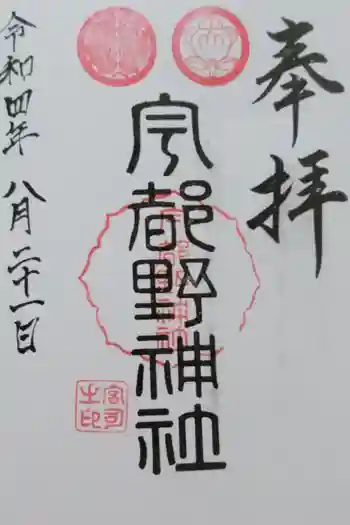 奉拝
宇都野神社
令和四年 八月二十一日
宮司之印